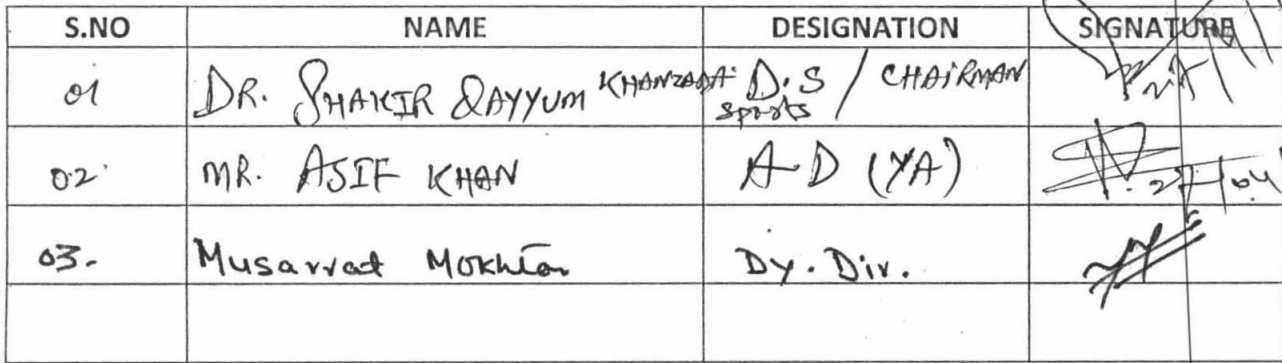 S.NO NAME DESIGNATION SIGNATURE
01 DR. SHAKIR QAYYUM KHANZADA D.S / CHAIRMAN
sports
02 MR. ASIF KHAN A.D (YA)
03. Musarrat Mokhtar Dy. Dir.